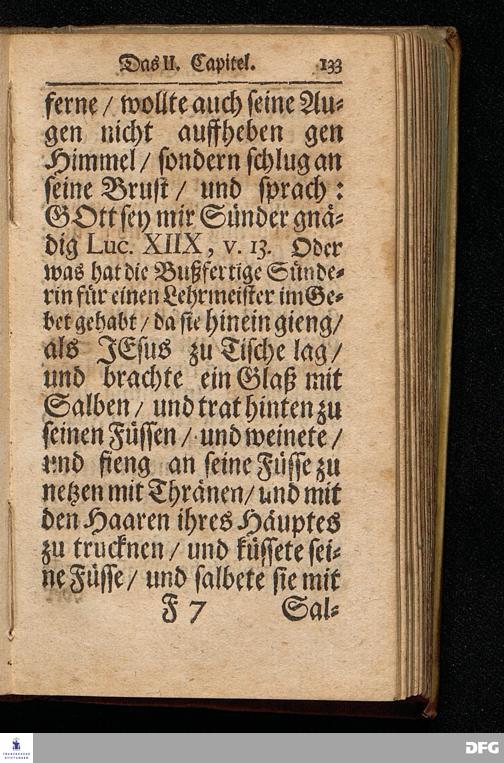 Das II. Capitel. 133
ferne / wollte auch seine Au-
gen nicht auffheben gen
Himmel / sondern schlug an
seine Brust / und sprach :
GOtt sey mir Sünder gnä-
dig Luc. XIIX, v. 13. Oder
was hat die Bußfertige Sünde-
rin für einen Lehrmeister im Ge-
bet gehabt / da sie hinein gieng /
als JEsus zu Tische lag /
und brachte ein Glaß mit
Salben / und trat hinten zu
seinen Füssen / und weinete /
und fieng an seine Füsse zu
netzen mit Thränen / und mit
den Haaren ihres Häuptes
zu trucknen / und küssete sei-
ne Füsse / und salbete sie mit
F 7 Sal-
FRANCKESCHE
STIFTUNGEN
DFG